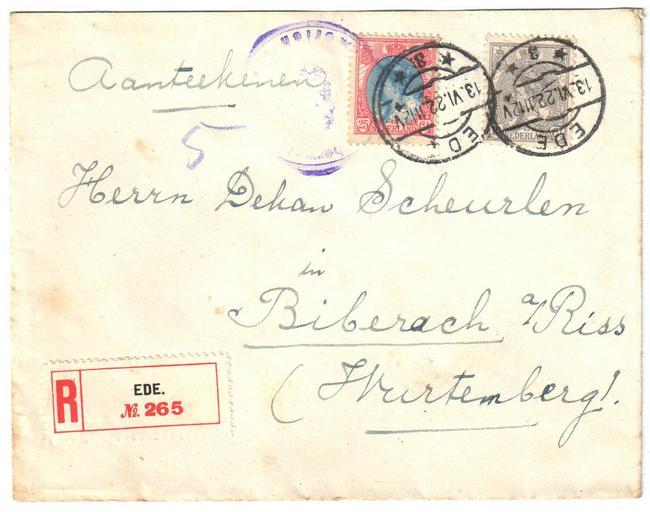 Aanteekenen
5
25 NEDERLAND
NEDERLAND
EDE 13.VI.22.11-12V 3
EDE 13.VI.22.11-12V 3
Herrn Dekan Scheurlen
in
Biberach a/Riss
(Wurtemberg).
R EDE.
No. 265